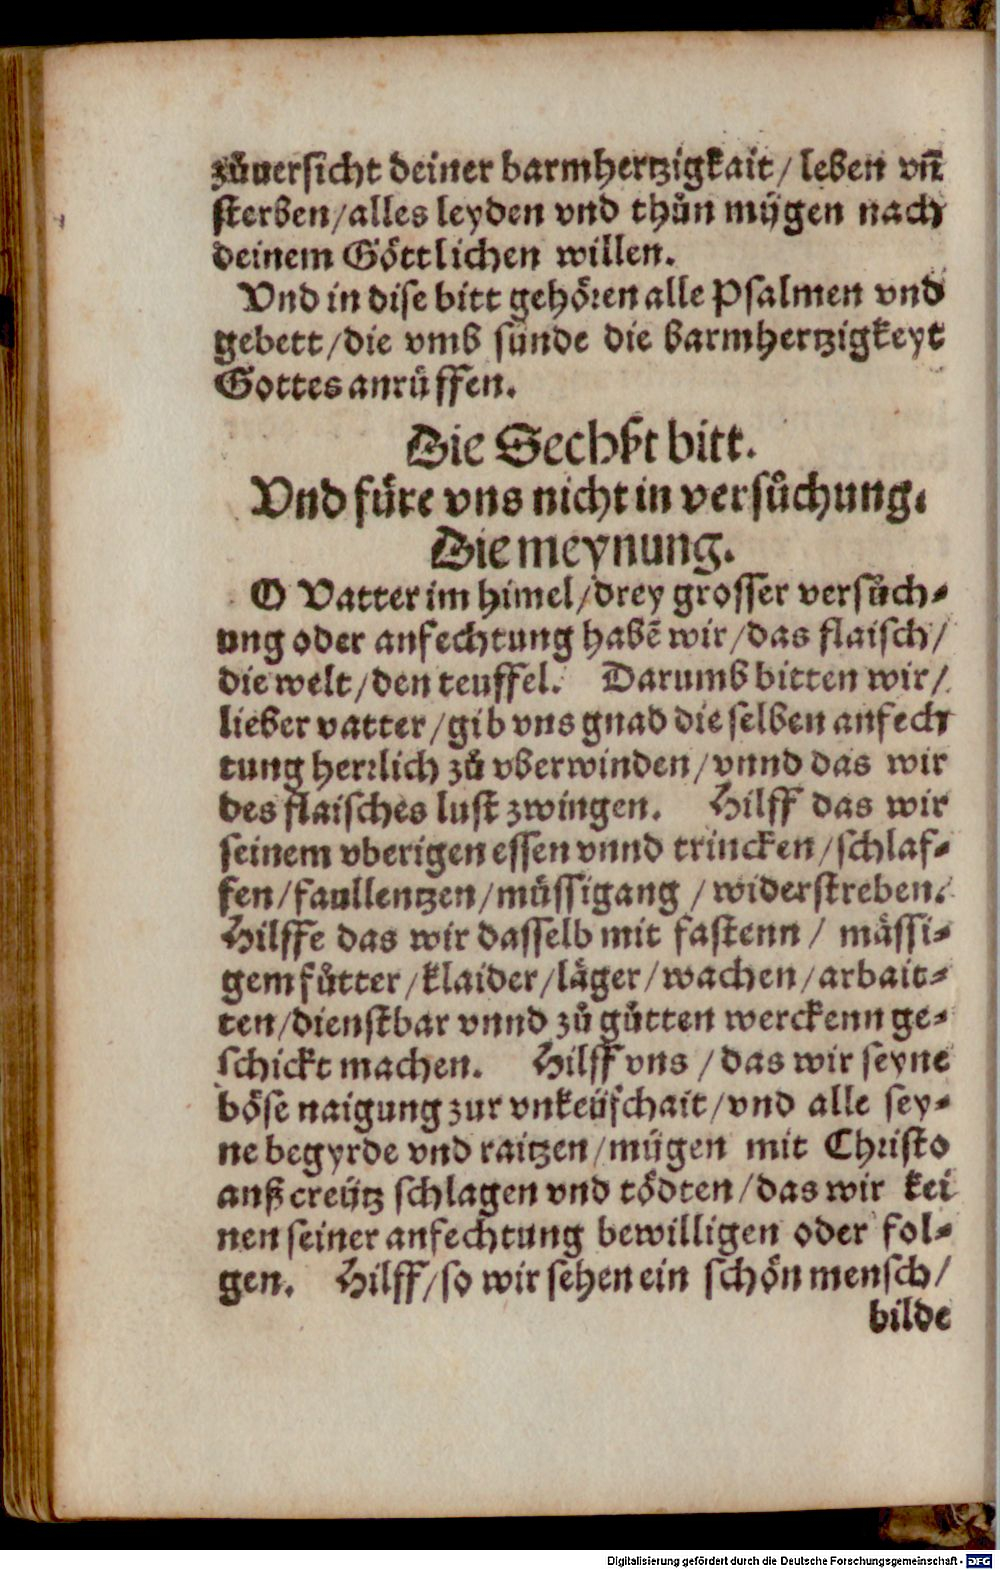 zůuersicht deiner barmhertzigkait / leben vn̄
sterben / alles leyden vnd thůn mügen nach
deinem Göttlichen willen.
Vnd in dise bitt gehören alle Psalmen vnd
gebett / die vmb sünde die barmhertzigkeyt
Gottes anrůffen.
Die Sechst bitt.
Vnd füre vns nicht in versůchung.
Die meynung.
O Vatter im himel / drey grosser versůch⸗
ung oder anfechtung habē wir / das flaisch /
die welt / den teuffel. Darumb bitten wir /
lieber vatter / gib vns gnad die selben anfech
tung herrlich zů vberwinden / vnnd das wir
des flaisches lust zwingen. Hilff das wir
seinem vberigen essen vnnd trincken / schlaf⸗
fen / faullentzen / müssigang / widerstreben.
Hilffe das wir dasselb mit fastenn / mässi⸗
gem fůtter / klaider / läger / wachen / arbait⸗
ten / dienstbar vnnd zů gůtten werckenn ge⸗
schickt machen. Hilff vns / das wir seyne
böse naigung zur vnkeüschait / vnd alle sey⸗
ne begyrde vnd raitzen / mügen mit Christo
anß creütz schlagen vnd tödten / das wir kei
nen seiner anfechtung bewilligen oder fol⸗
gen. Hilff / so wir sehen ein schön mensch /
bilde
Digitalisierung gefördert durch die Deutsche Forschungsgemeinschaft - DFG